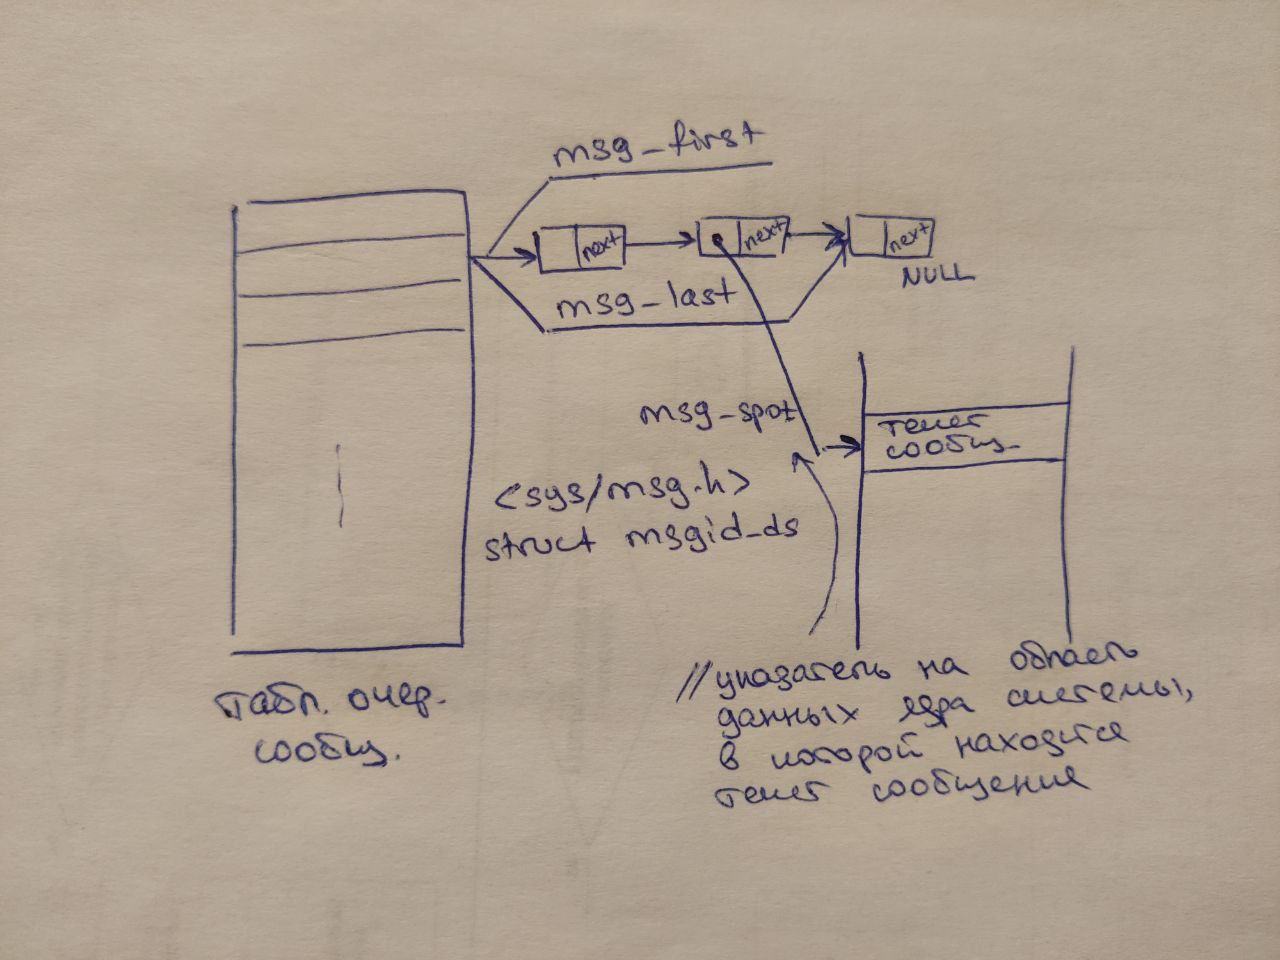 msg_first
next
next
next
NULL
msg_last
msg_spot
текст
сообщ.
<sys/msg.h>
struct msgid_ds
табл. очер.
сообщ.
// указатель на область
данных ядра системы,
в которой находится
текст сообщения